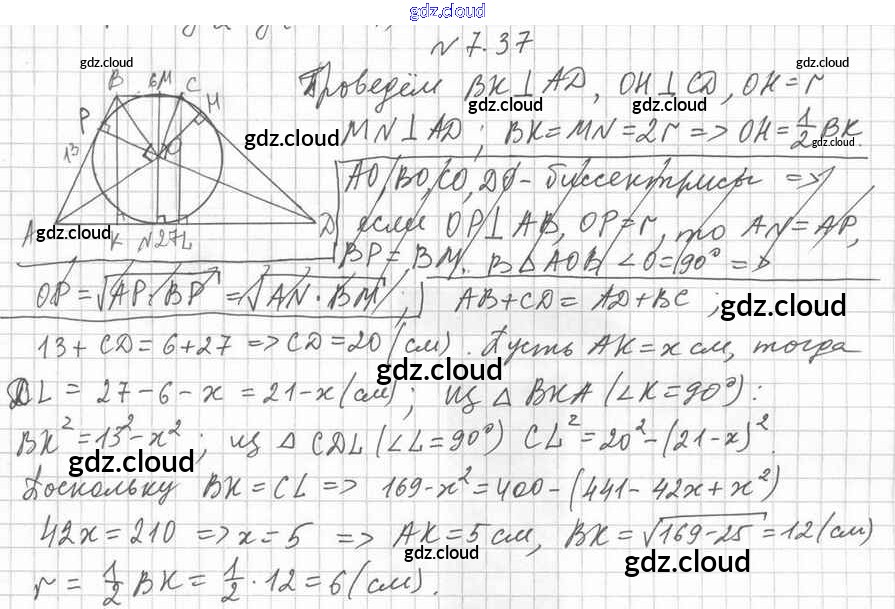 gdz.cloud
N 7.37
gdz.cloud
B 6 M C
P H
O
13
A D
K N 27 L
Проведём BK ⊥ AD, OH ⊥ CD, OH = r
gdz.cloud gdz.cloud
gdz.cloud
MN ⊥ AD; BK = MN = 2r => OH = 1/2 BK.
gdz.cloud
AO, BO, CO, DO - биссектрисы =>
gdz.cloud gdz.cloud
если OP ⊥ AB, OP = r, то AN = AP,
BP = BM. В △ AOB ∠O = 90° =>
OP = √AP·BP = √AN·BM; AB + CD = AD + BC;
gdz.cloud
13 + CD = 6 + 27 => CD = 20 (см). Пусть AK = x см, тогда
gdz.cloud
DL = 27 - 6 - x = 21 - x (см); из △ BKA (∠K = 90°):
BK² = 13² - x²; из △ CDL (∠L = 90°) CL² = 20² - (21 - x)².
gdz.cloud gdz.cloud
Поскольку BK = CL => 169 - x² = 400 - (441 - 42x + x²)
42x = 210 => x = 5 => AK = 5 см, BK = √169 - 25 = 12 (см)
gdz.cloud gdz.cloud
r = 1/2 BK = 1/2 · 12 = 6 (см).